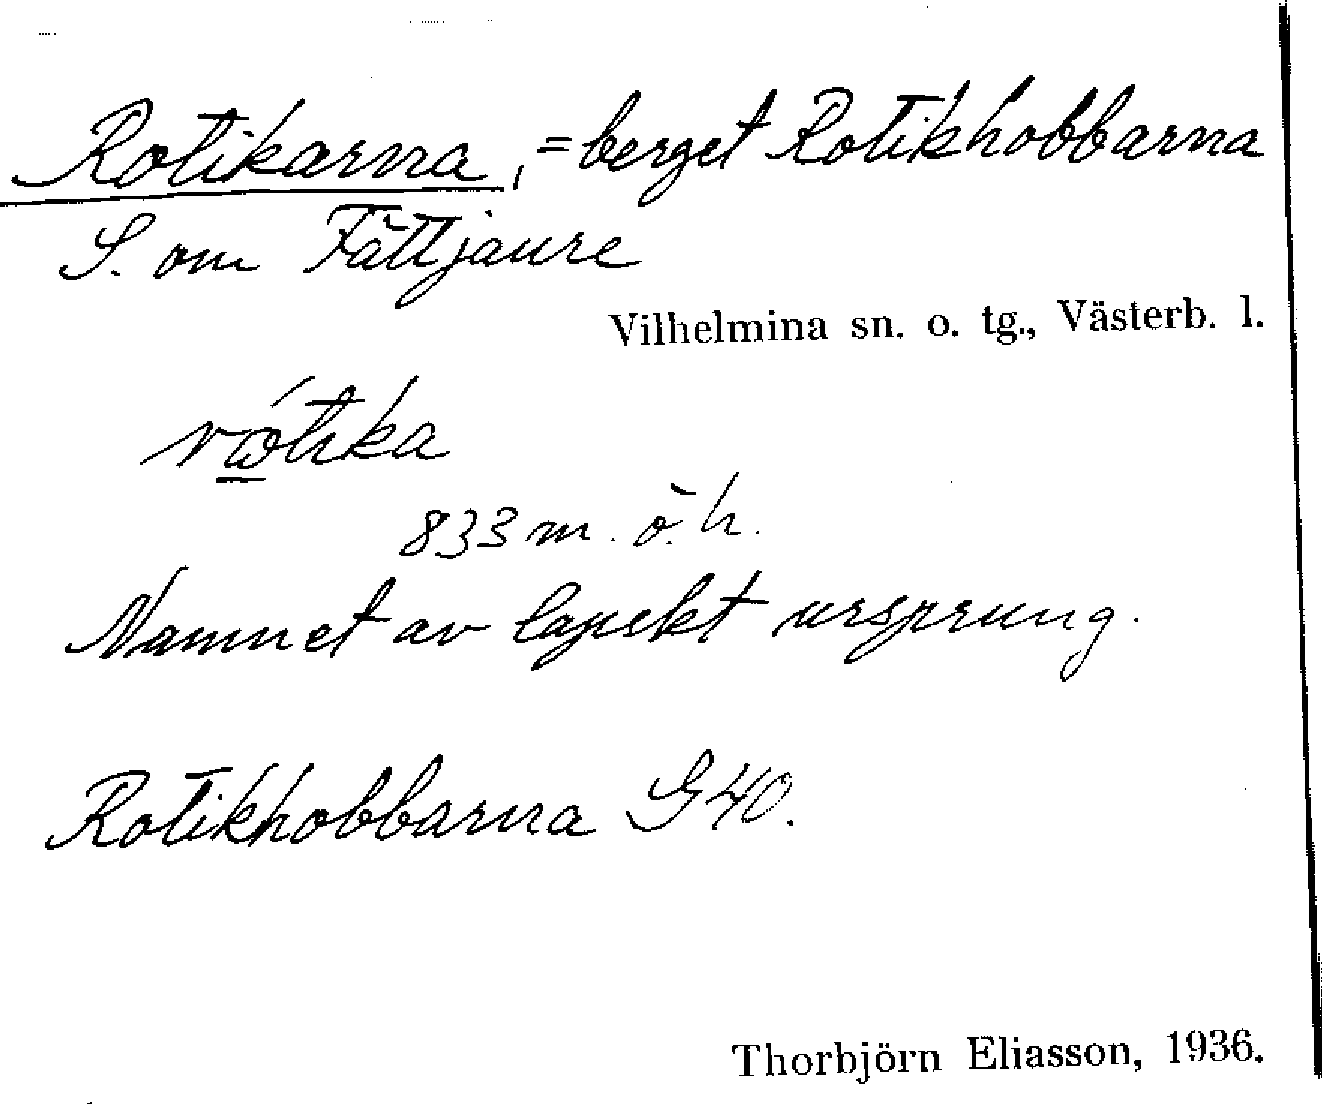 Rotikarna, = berget Rotikhobbarna
S. om Fättjaure
Vilhelmina sn. o. tg., Västerb. l.
833 m. ö. h.
Namnet av lapskt ursprung.
Rotikhobbarna G40.
Thorbjörn Eliasson, 1936.